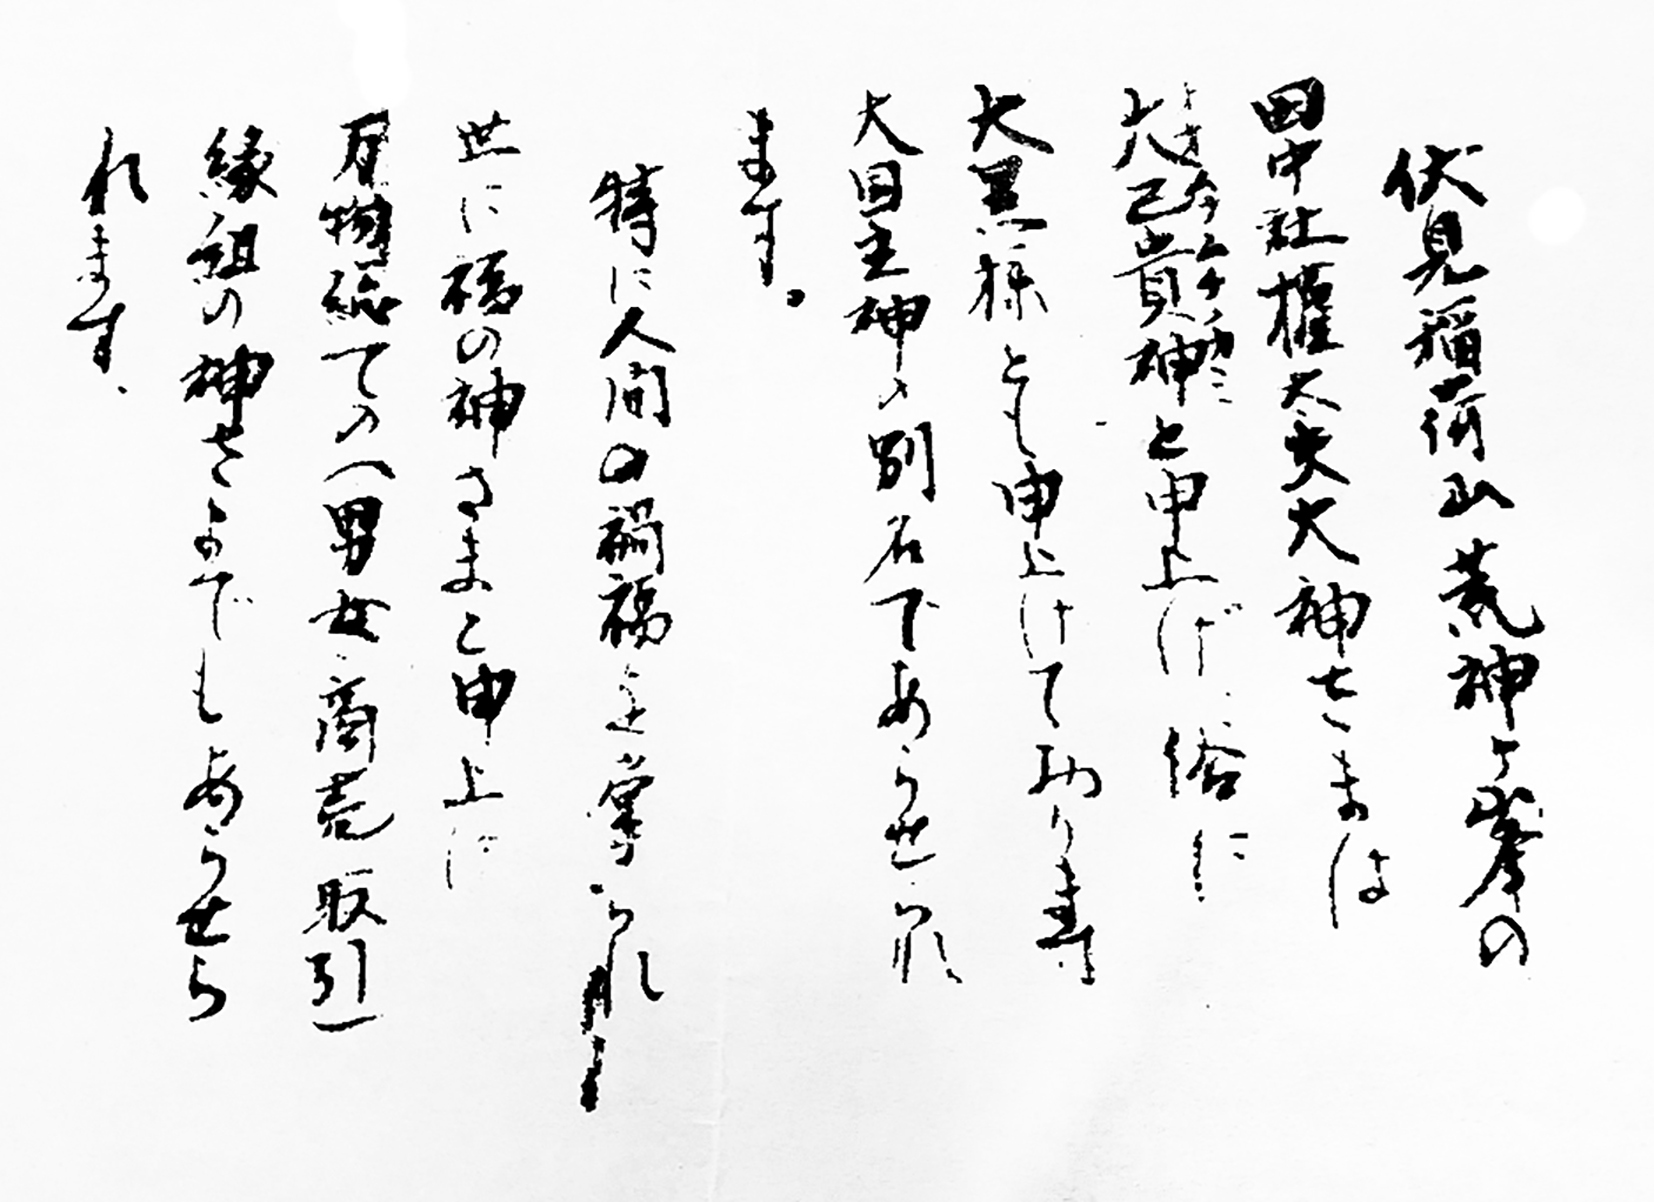 伏見稲荷山荒神ヶ峯の
田中社権太夫大神さまは
大己貴神と申上げ、俗に
オオナムチノカミ
大黒様とも申上げて おります
大国主神の別名であらせられ
ます。
特に人間の禍福を掌られます
世に福の神さまと申上げ
万物総ての(男女、商売取引)
縁組の神さまでもあらせら
れます、